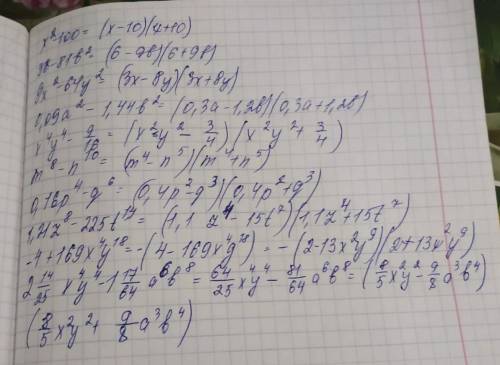 x² 100 = (x-10)(x+10)
36-81b² = (6-9b)(6+9b)
9x²-64y² = (3x-8y)(3x+8y)
0,09a²-1,44b² = (0,3a-1,2b)(0,3a+1,2b)
x⁴y⁴ - 9/16 = (x²y² - 3/4)(x²y² + 3/4)
m⁸-n¹⁰ = (m⁴-n⁵)(m⁴+n⁵)
0,16p⁴-g⁶ = (0,4p²-g³)(0,4p²+g³)
1,21z⁸-225t¹⁴ = (1,1 z⁴-15t⁷)(1,1z⁴+15t⁷)
-4+169x⁴y¹⁸ = -(4-169x⁴y¹⁸) = -(2-13x²y⁹)(2+13x²y⁹)
2 14/25 x⁴y⁴ - 1 17/64 a⁶b⁸ = 64/25 x⁴y⁴ - 81/64 a⁶b⁸ = (8/5 x²y² - 9/8 a³b⁴)
(8/5 x²y² + 9/8 a³b⁴)